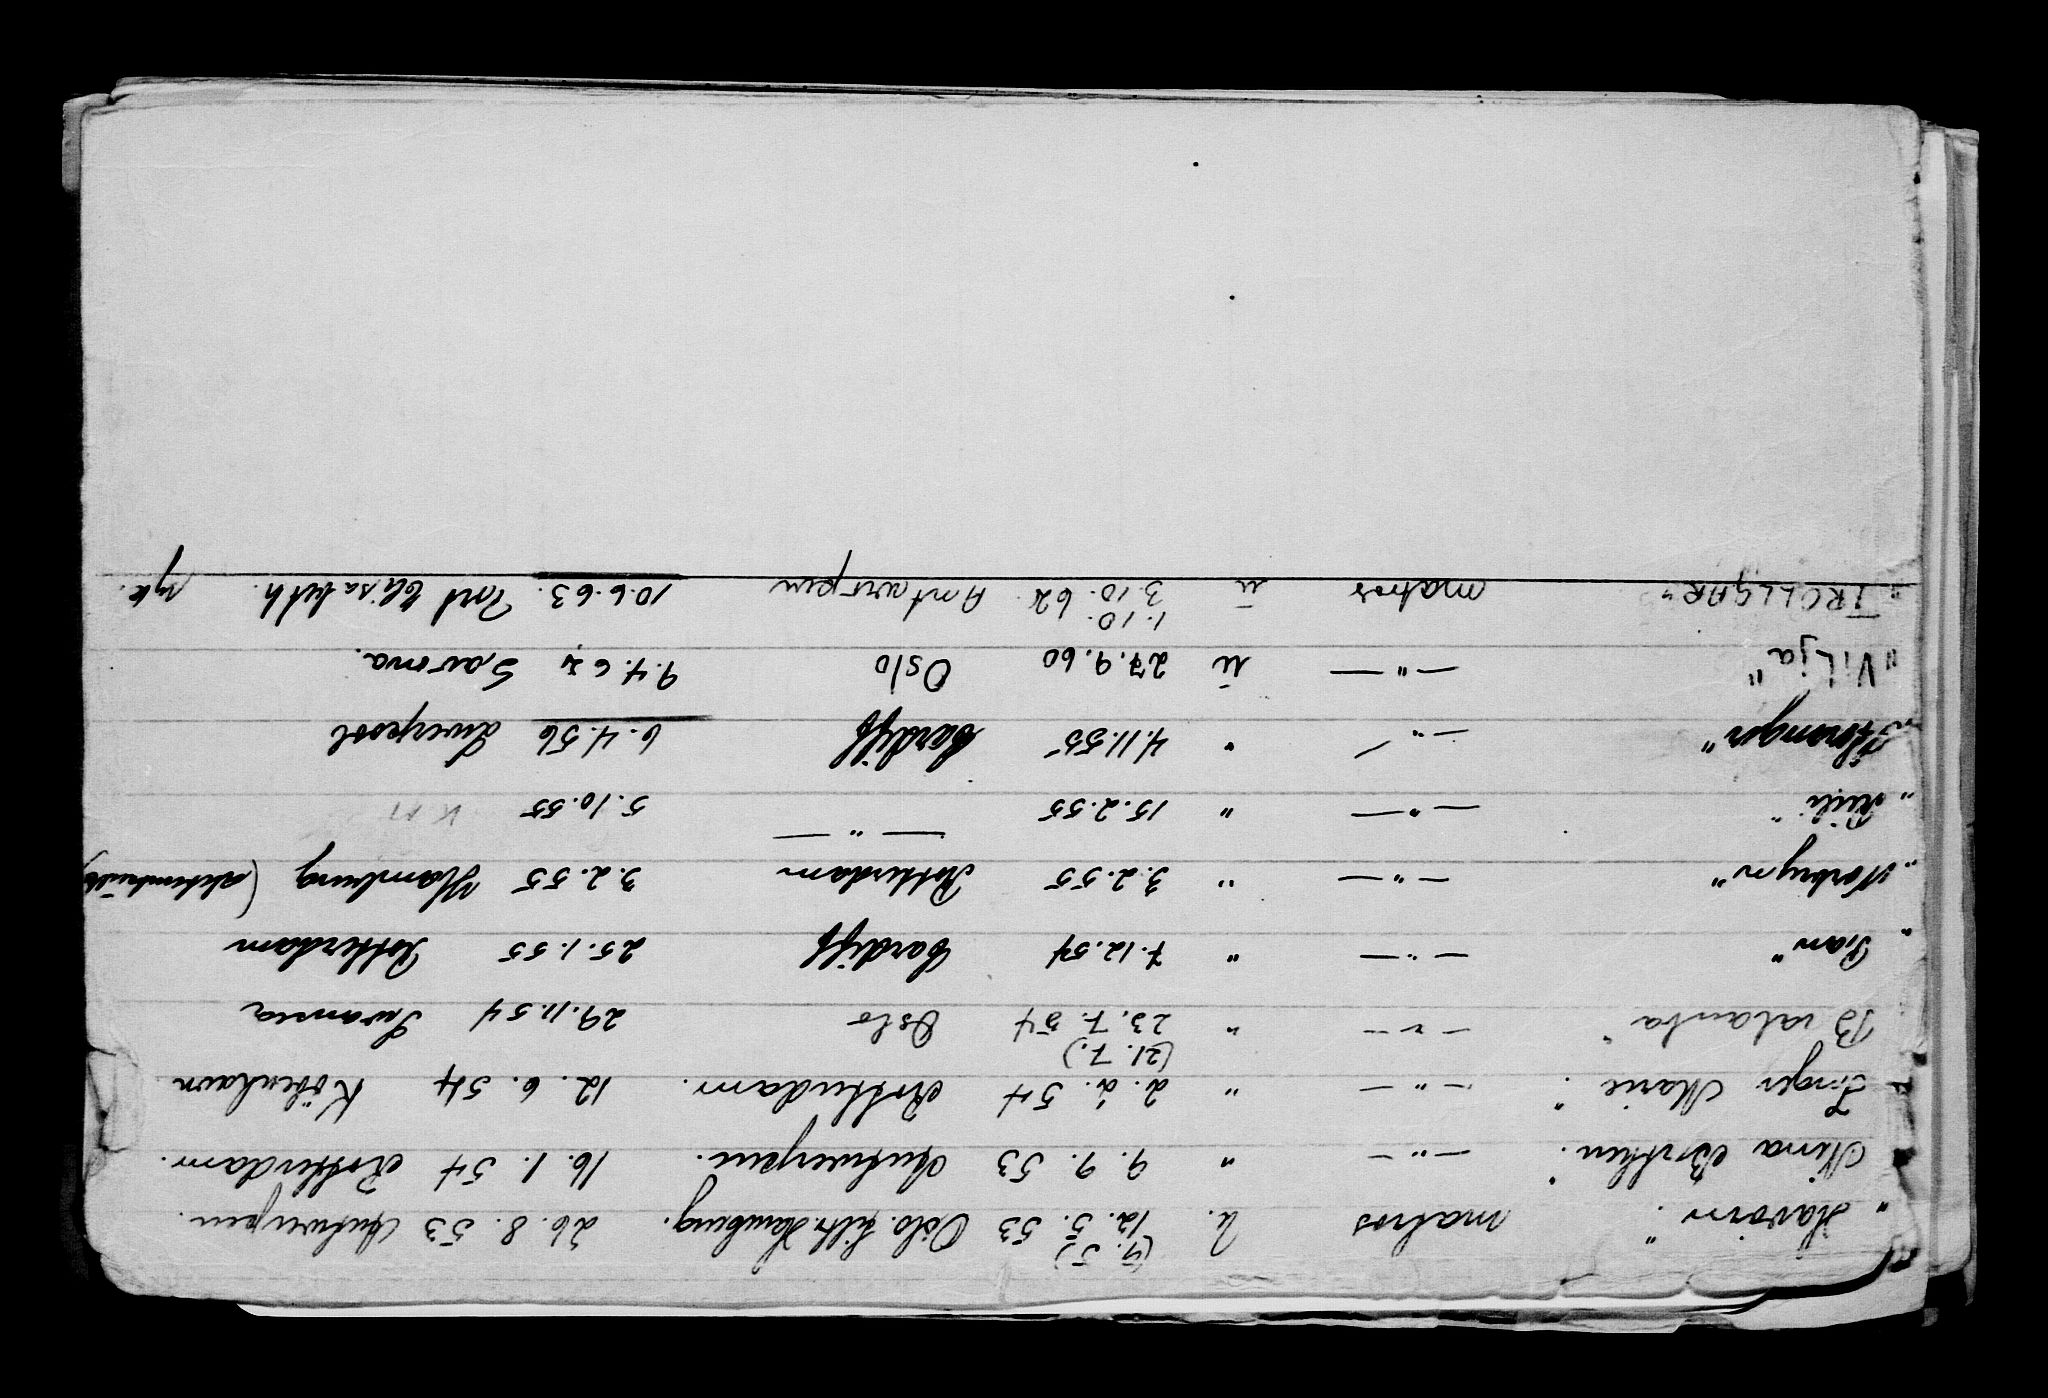 "Havörn". matros u. (9. 5) 12. 5. 53 Oslo. f. Hamburg. 26. 8. 53 Antwerpen.
Nina Borthen". —"— " 9. 9. 53 Antwerpen. 16. 1. 54 Rotterdam.
Inger Marie". —"— " 2. 2. 54 Rotterdam. 12. 6. 54 København
Bralanta" —"— " (21. 7.) 23. 7. 54 Oslo 29.11.54 Swansea
" Pan" —"— " 7.12.54 Cardiff 25.1.55 Rotterdam
"Norbryn" —"— " 3.2.55 Rotterdam 3.2.55 Hamburg
" —"— " 15.2.55 —"— 5.10.55
—"— " 4.11.55 Cardiff 6.4.56 Liverpool
"Vilja" —"— u 27.9.60 Oslo 9.4.62 Savona.
"TROLLGAR" matros u 1.10. 3.10.62. Antwerpen 10.6.63. Port Elisabeth. syk.